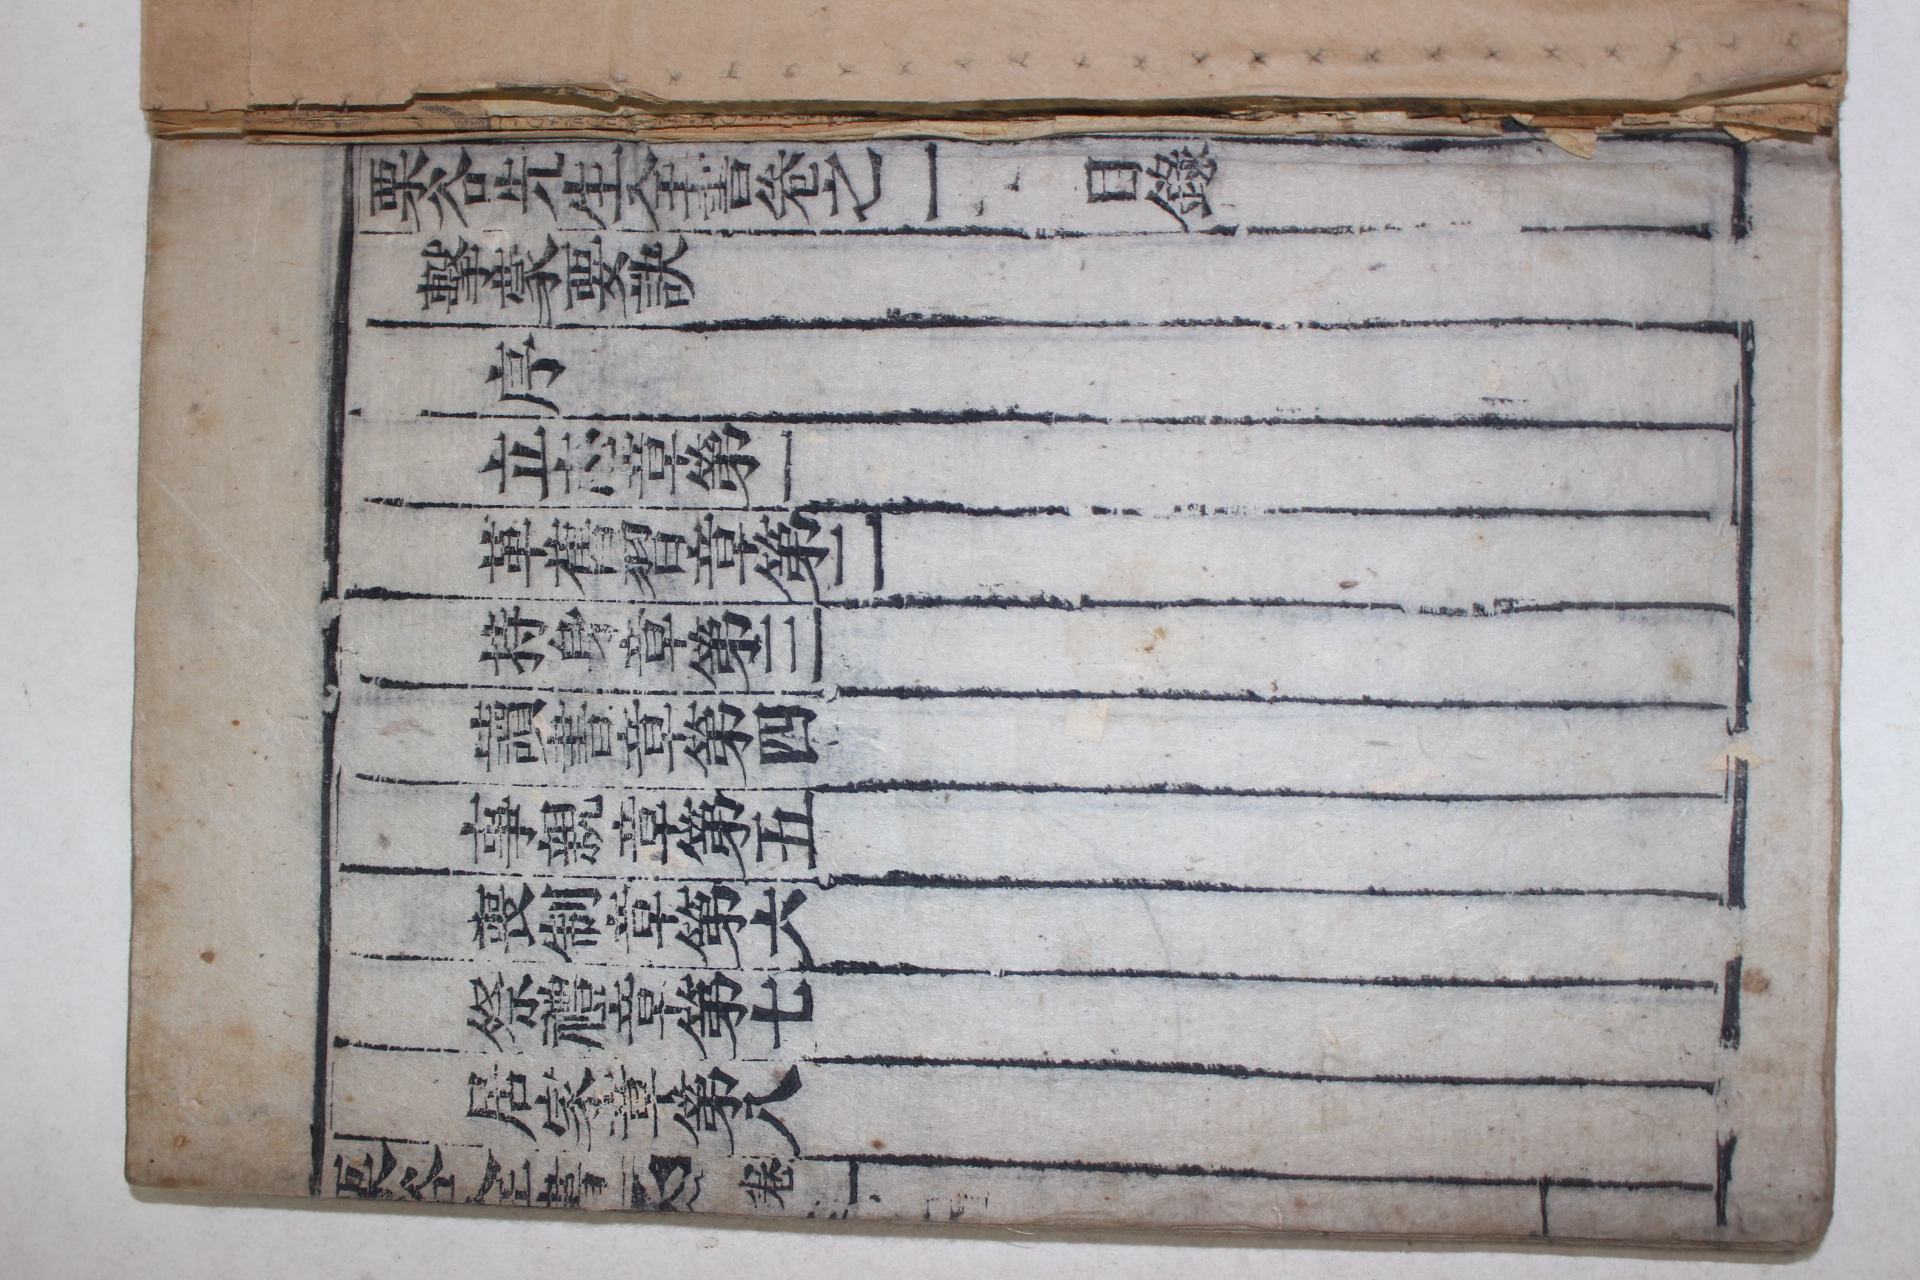 栗谷先生全書卷之一 目錄
擊蒙要訣
序
立志章第一
革舊習章第二
持身章第三
讀書章第四
事親章第五
喪制章第六
祭禮章第七
居家章第八
栗谷全書 卷一